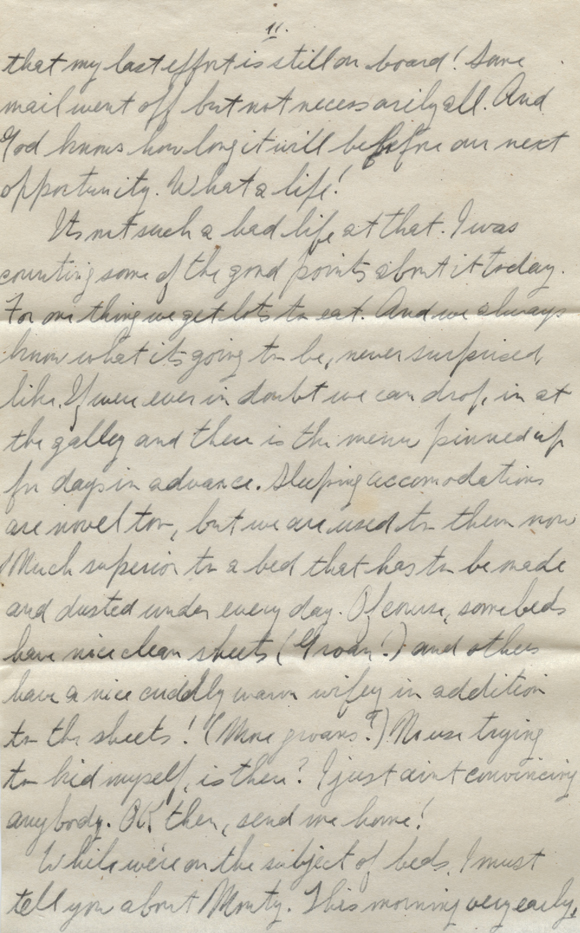 11.
that my last effort is still on board! Some
mail went off but not necessarily all. And
God knows how long it will be before our next
opportunity. What a life!
Its not such a bad life at that. I was
counting some of the good points about it today.
For one thing we get lots to eat. And we always
know what its going to be, never surprised,
like. If were ever in doubt we can drop in at
the galley and there is the menu pinned up
for days in advance. Sleeping accomodations
are novel too, but we are used to them now
Much superior to a bed that has to be made
and dusted under every day. Of course, some beds
have nice clean sheets (Groan!) and others
have a nice cuddly warm wifey in addition
to the sheets! (More groans!) No use trying
to kid myself, is there? I just aint convincing
anybody. OK then, send me home!
While we're on the subject of beds, I must
tell you about Monty. This morning very early,